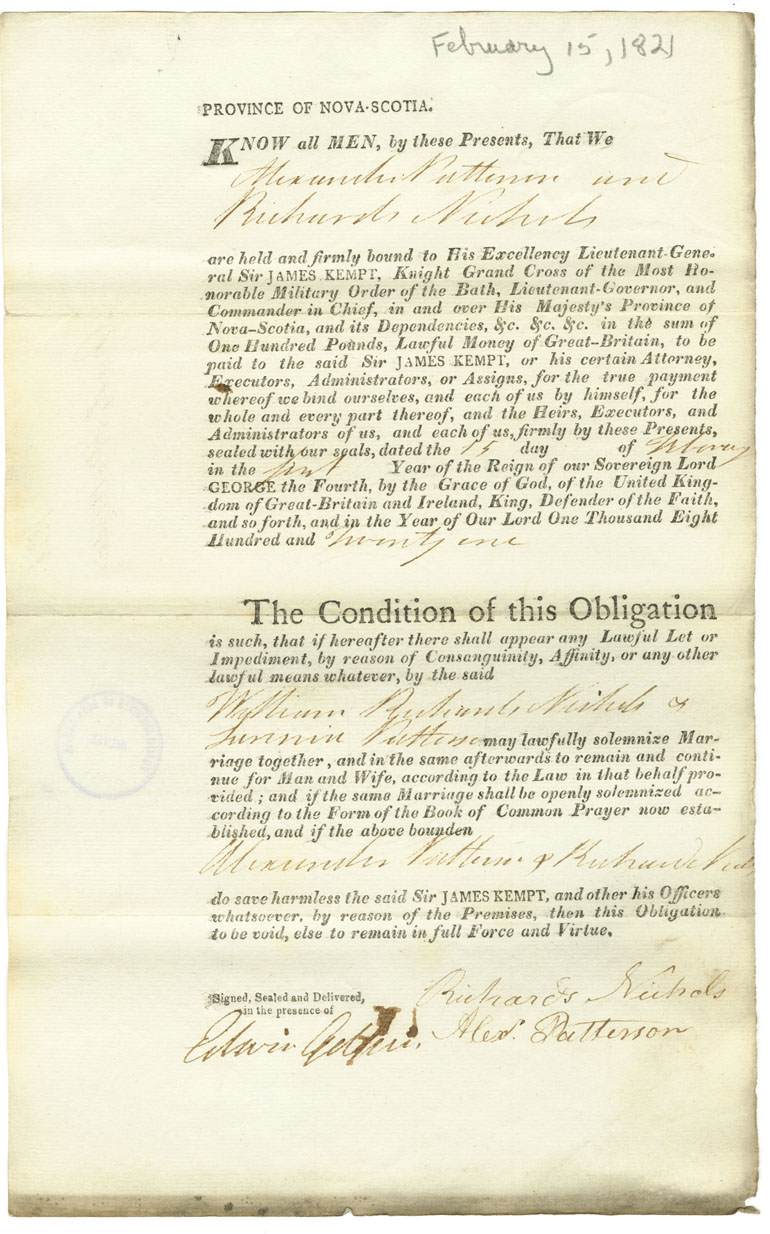 February 15, 1821
PROVINCE OF NOVA-SCOTIA.
KNOW all MEN, by these Presents, That We
Alexander Patterson and
Richards Nichols
are held and firmly bound to His Excellency Lieutenant-Gene-
ral Sir JAMES KEMPT, Knight Grand Cross of the Most Ho-
norable Military Order of the Bath, Lieutenant-Governor, and
Commander in Chief, in and over His Majesty's Province of
Nova-Scotia, and its Dependencies, &c. &c. &c. in the sum of
One Hundred Pounds, Lawful Money of Great-Britain, to be
paid to the said Sir JAMES KEMPT, or his certain Attorney,
Executors, Administrators, or Assigns, for the true payment
whereof we bind ourselves, and each of us by himself, for the
whole and every part thereof, and the Heirs, Executors, and
Administrators of us, and each of us, firmly by these Presents,
sealed with our seals, dated the 15 day of
in the first Year of the Reign of our Sovereign Lord
GEORGE the Fourth, by the Grace of God, of the United King-
dom of Great-Britain and Ireland, King, Defender of the Faith,
and so forth, and in the Year of Our Lord One Thousand Eight
Hundred and Twenty one
The Condition of this Obligation
is such, that if hereafter there shall appear any Lawful Let or
Impediment, by reason of Consanguinity, Affinity, or any other
lawful means whatever, by the said
William Richards Nichols &
Patterson may lawfully solemnize Mar-
riage together, and in the same afterwards to remain and conti-
nue for Man and Wife, according to the Law in that behalf pro-
vided; and if the same Marriage shall be openly solemnized ac-
cording to the Form of the Book of Common Prayer now esta-
blished, and if the above bounden
Alexander Patterson & Richards
do save harmless the said Sir JAMES KEMPT, and other his Officers
whatsoever, by reason of the Premises, then this Obligation
to be void, else to remain in full Force and Virtue.
Signed, Sealed and Delivered,
in the presence of
Richards Nichols
Edwin
Alexr. Patterson